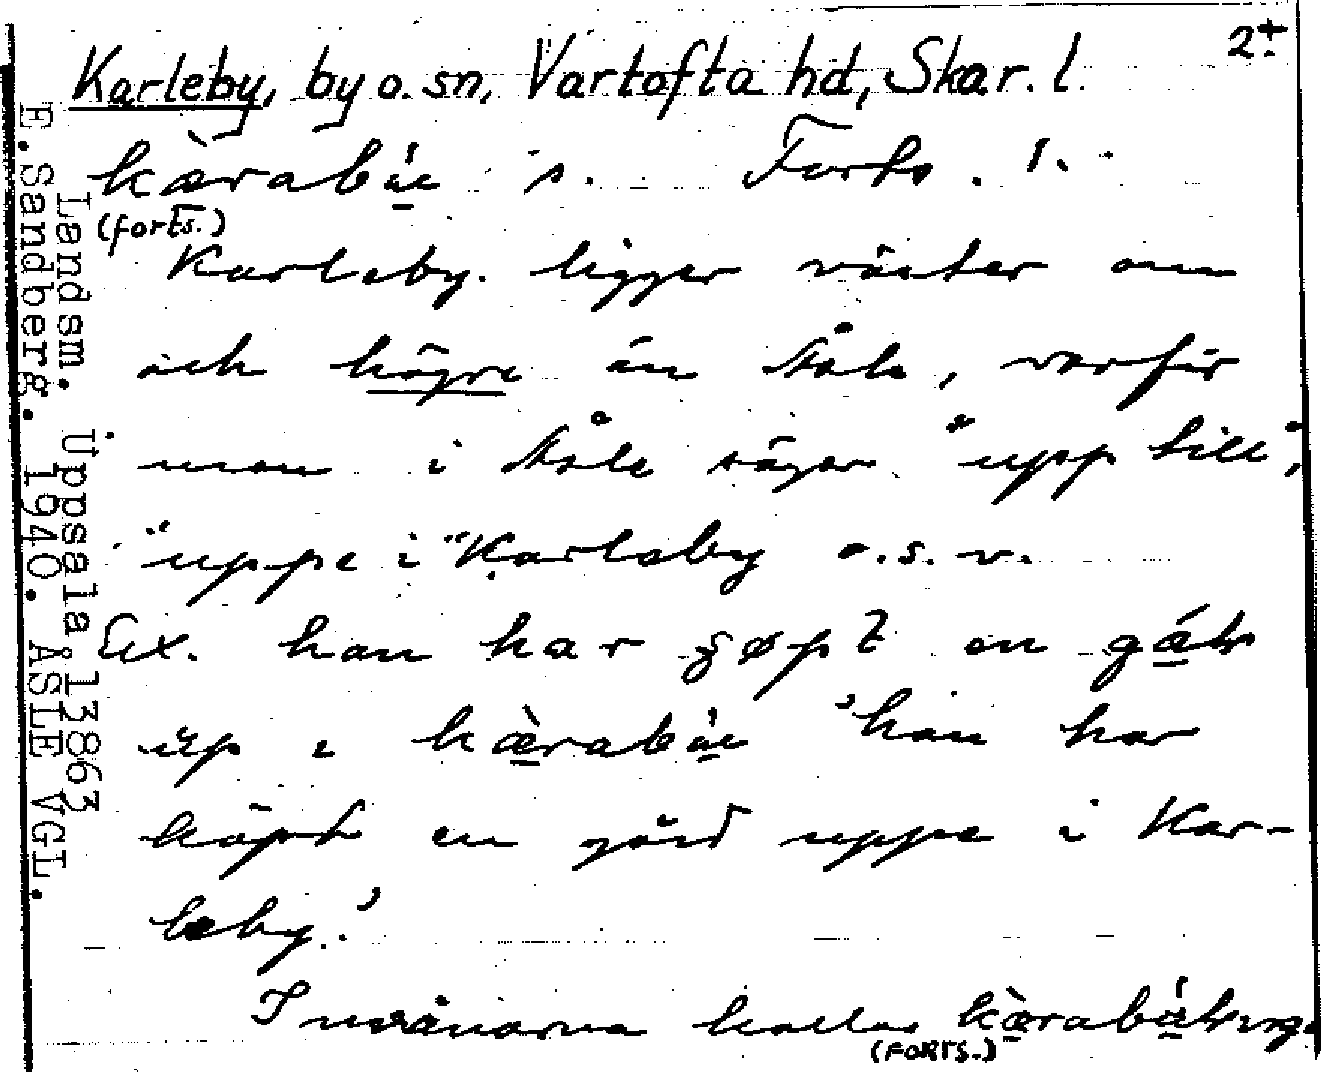 2
Karleby, by o. sn, Vartofta hd, Skar. l.
kæ̀rabú s. Forts. 1.
(forts.)
Karleby ligger väster om
och högre än Åsle, varför
man i Åsle säger "upp till",
"uppe i" Karleby o.s.v.
Ex. han har en
up i kæ̀rabú 'han har
köpt en gård uppe i Kar-
leby.'
Invånarna kallas
(FORTS.)
Landsm. Uppsala 13863
E.Sandberg. 1940. ÅSLE VGL.